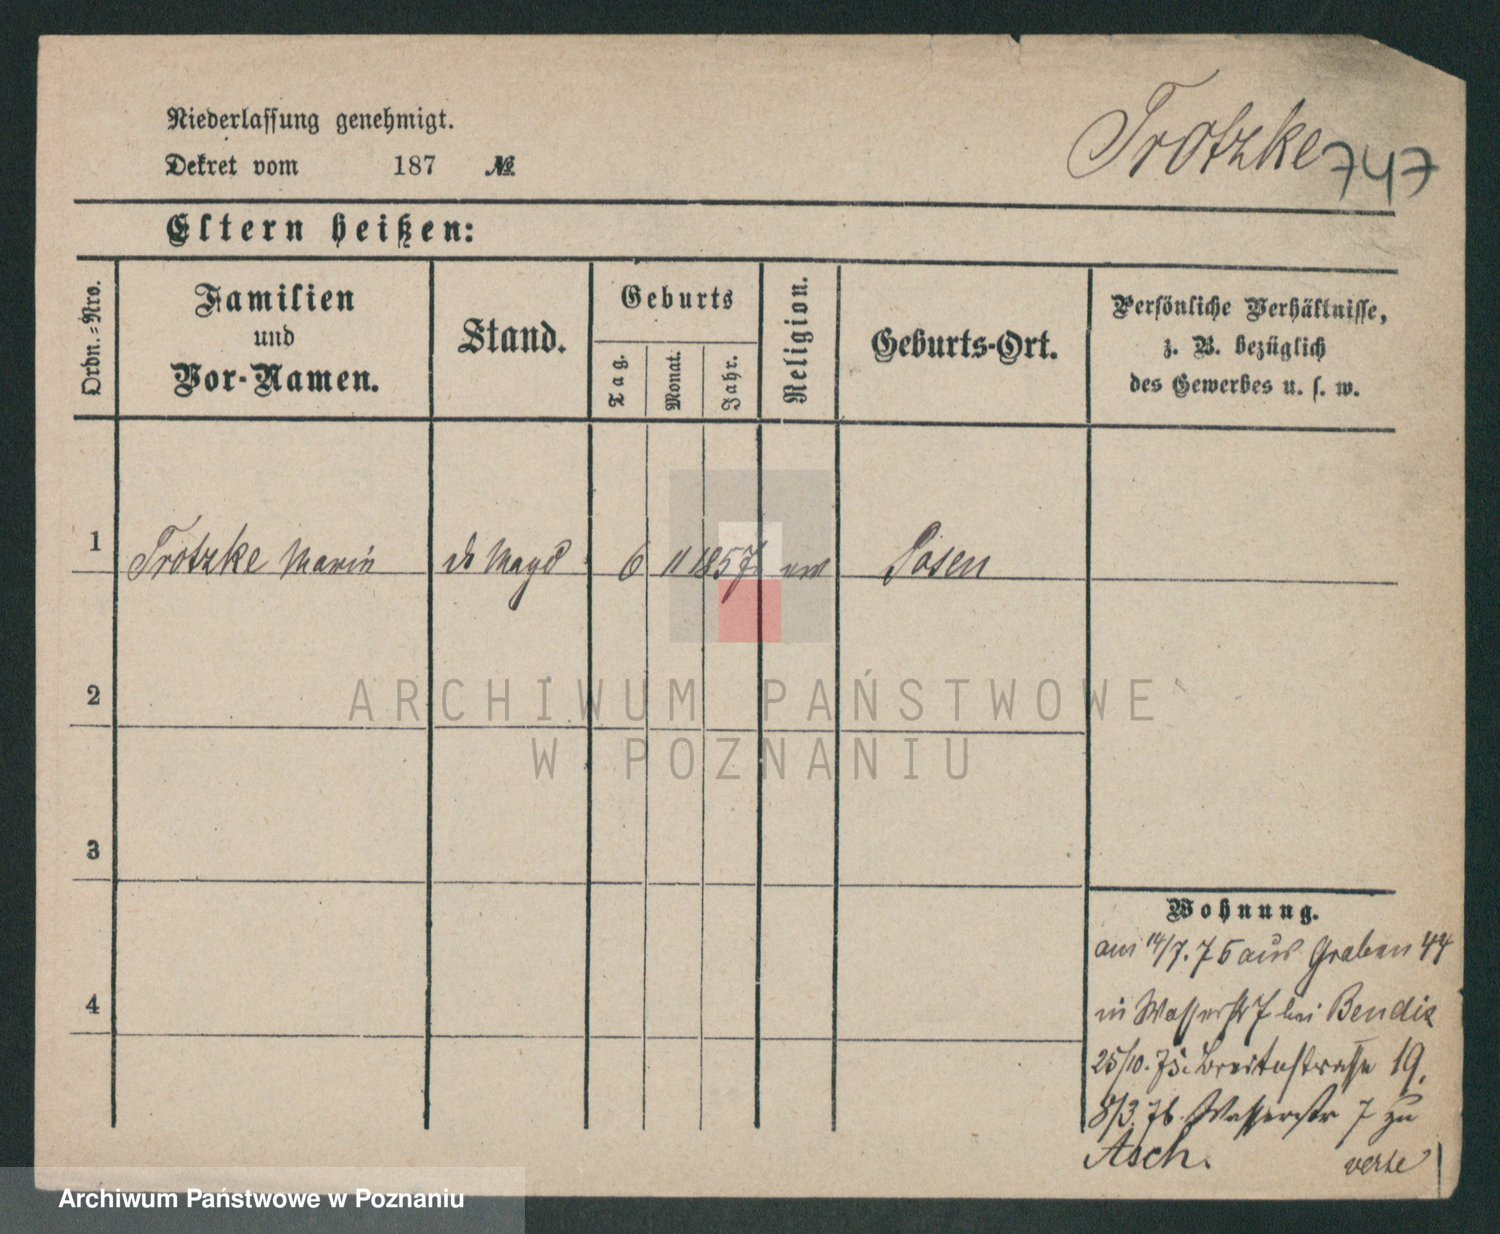 Niederlassung genehmigt.
Trotzke 747
Dekret vom 187 №
Eltern heißen:
Ordn.=Nro.
Familien
und
Vor-Namen.
Stand.
Geburts
Tag.
Monat.
Jahr.
Religion.
Geburts-Ort.
Persönliche Verhältnisse,
z. B. bezüglich
des Gewerbes u. s. w.
1 Trotzke Marie Magd 6 11 1857 Posen
2
ARCHIWUM PAŃSTWOWE
W POZNANIU
3
4
Wohnung.
am 14/7. 75 aus Graben 44
in Wasserstr 7 bei Bendix
25/10. 75. Breitestrasse 19.
8/3. 76. Wasserstr 7 zu
Asch. verte
Archiwum Państwowe w Poznaniu